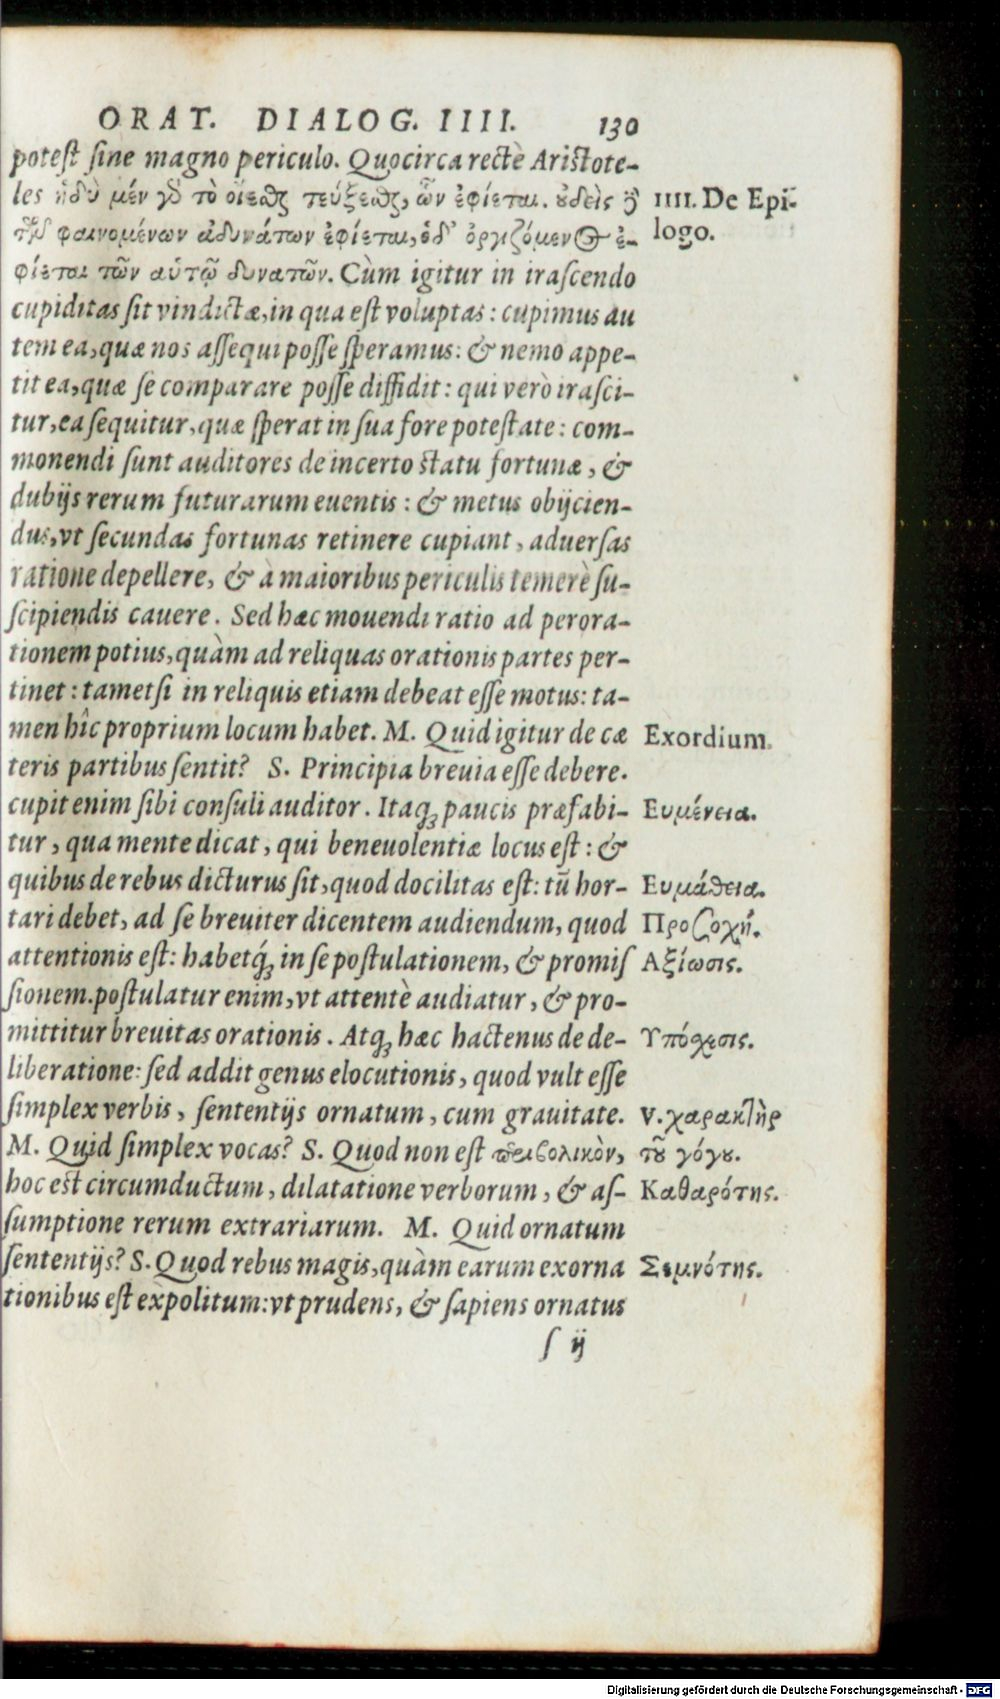 ORAT. DIALOG. IIII. 130
potest sine magno periculo. Quocirca rectè Aristote-
les ἡδὺ μέν γὸ τὸ οἴεσθαι τεύξεσθαι, ὧν ἐφίεται. οὐδεὶς δὲ
τῶν φαινομένων ἀδυνάτων ἐφίεται, ὁδ' ὀργιζόμενος ἐ-
φίεται τῶν αὑτῷ δυνατῶν. Cùm igitur in irascendo
cupiditas sit vindictæ, in qua est voluptas: cupimus au
tem ea, quæ nos assequi posse speramus: & nemo appe-
tit ea, quæ se comparare posse diffidit: qui verò irasci-
tur, ea sequitur, quæ sperat in sua fore potestate: com-
monendi sunt auditores de incerto statu fortunæ, &
dubijs rerum futurarum euentis: & metus obijcien-
dus, vt secundas fortunas retinere cupiant, aduersas
ratione depellere, & à maioribus periculis temerè su-
scipiendis cauere. Sed hæc mouendi ratio ad perora-
tionem potius, quàm ad reliquas orationis partes per-
tinet: tametsi in reliquis etiam debeat esse motus: ta-
men hîc proprium locum habet. M. Quid igitur de cæ
teris partibus sentit? S. Principia breuia esse debere.
cupit enim sibi consuli auditor. Itaq; paucis præfabi-
tur, qua mente dicat, qui beneuolentiæ locus est: &
quibus de rebus dicturus sit, quod docilitas est: tū hor-
tari debet, ad se breuiter dicentem audiendum, quod
attentionis est: habetq́; in se postulationem, & promis
sionem. postulatur enim, vt attentè audiatur, & pro-
mittitur breuitas orationis. Atq; hæc hactenus de de-
liberatione: sed addit genus elocutionis, quod vult esse
simplex verbis, sententijs ornatum, cum grauitate.
M. Quid simplex vocas? S. Quod non est περιβολικὸν,
hoc est circumductum, dilatatione verborum, & as-
sumptione rerum extrariarum. M. Quid ornatum
sententijs? S. Quod rebus magis, quàm earum exorna
tionibus est expolitum: vt prudens, & sapiens ornatus
s ij
IIII. De Epi-
logo.
Exordium.
Ευμένεια.
Ευμάθεια.
Προσοχή.
Αξίωσις.
Υπόσχεσις.
V. χαρακτὴρ
τοῦ γόγου.
Καθαρότης.
Σεμνότης.
Digitalisierung gefördert durch die Deutsche Forschungsgemeinschaft - DFG